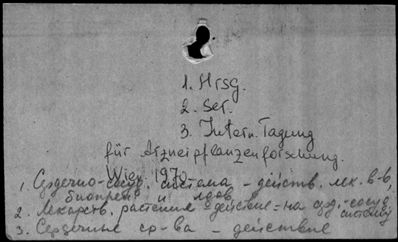 1. Hrsg.
2. Ser.
3. Intern. Tagung
für Arzneipflanzenforschung.
Wien, 1970
1. Сердечно-сосуд. система - действ. лек. в-в,
биопреп. и ядов
2. Лекарств. растение - действие - на срд.-сосуд. систему
3. Сердечные ср-ва - действие